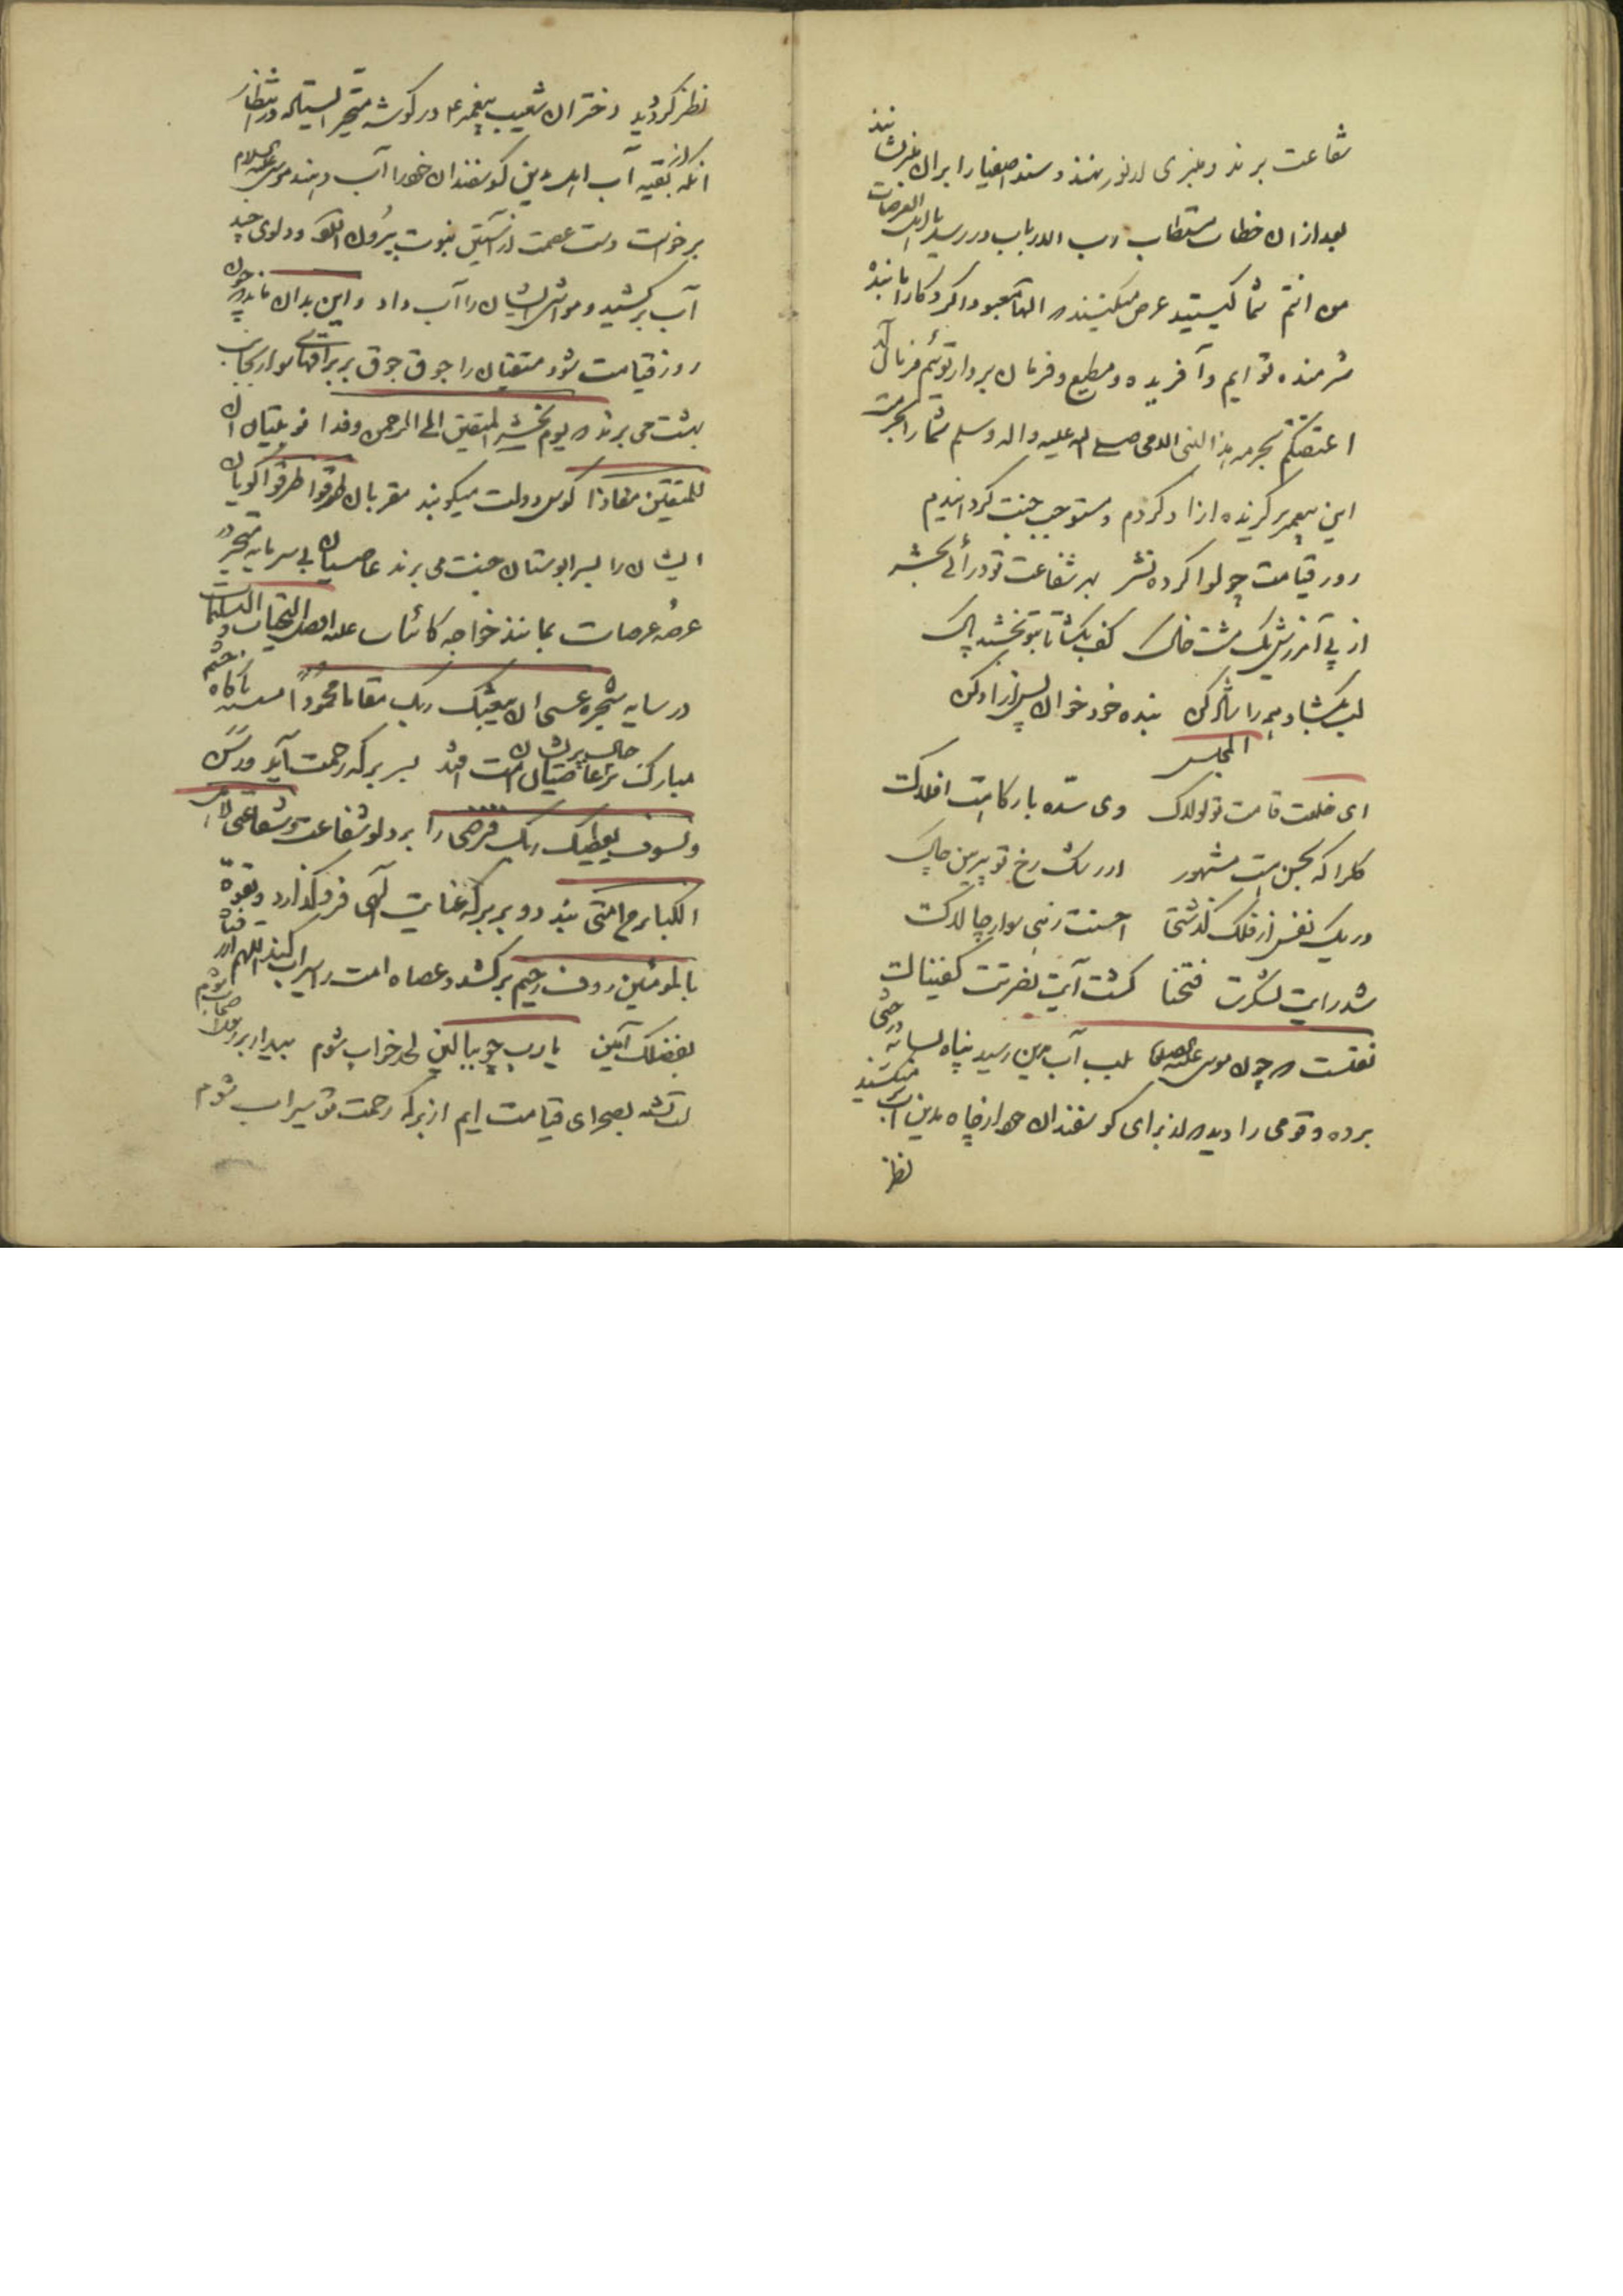 شفاعت برند و منبری از نور بنهند و سید اصفیا را بران منبر نشانند
بعد ازان خطاب مستطاب رب الارباب در رسد یا اهل العرصات
من انتم شما کیستید عرض میکنند الها معبودا کردکارا ما بنده
شرمنده تو ایم و آفریده و مطیع و فرمان بردار توئیم فرمان آید
اعتقتکم بحرمه هذا النبی الامی صلی الله علیه واله وسلم شما را بحرمت
این پیغمبر کزیده ازاد کردم و مستوجب جنت کردانیدم
روز قیامت چو لوا کرده نشر بهر شفاعت تو درائی بحشر
از پی آمرزش یک مشت خاک کف بکشا تا بتو بخشند پاک
لب بکشا و همه را شاد کن بنده خود خوان پس ازاد کن
المجلس
ای خلعت قامت تو لولاک وی سده بارکاهت افلاک
کلرا که بحسن هست مشهور از رشک رخ تو پیرهن چاک
در یک نفس از فلک کذشتی احسنت زهی سوار چالاک
شد رایت لشکرت فتحنا کشت آیت نصرتت کفیناک
نقلست چون موسی علیه الصلوة بلب آب مدین رسید پناه بسایه درختی
برده و قومی را دید از برای کوسفندان خود از چاه مدین آب میکشیدند
نظر
نظر کردید دختران شعیب پیغمبر ۴ در کوشه متحیر ایستاده در انتظار
انکه از بقیه آب اهل مدین کوسفندان خود را آب دهند موسی علیه السلام
برخواست دست عصمت از آستین نبوت بیرون آورد و دلوی چند
آب برکشید و مواشی ایشان را آب داد و این بدان ماند چون
روز قیامت شود متقیان را جوق جوق بر براقهای سوار بجانب
بهشت می برند یوم نحشر المتقین الی الرحمن وفدا نوبتیان ان
للمتقین مفازا کوس دولت میکوبند مقربان طرقوا طرقوا کویان
ایشان را بسرابوستان جنت می برند عاصیان بی سرمایه متحیر در
عرصه عرصات بمانند خواجه کائنات علیه افضل التحیات و التسلیمات
در سایه شجره عسی ان یبعثک ربک مقاما محمودا نشسته ناکاه چشم
مبارکش بر عاصیان پریشان حال امت افتد بسر برکه رحمت آید و رسن
ولسوف یعطیک ربک فترضی را بر دلو شفاعت و شفاعتی لاهل
الکبایر من امتی بندد و بر برکه عنایت آلهی فرو کذارد و بقوة
بالمومنین روف رحیم برکشد و عصاه امت را سیراب کند اللهم ارزقنا
بفضلک آمین یا رب چو ببالین لحد خواب شوم بیدار بروی اصحاب شوم
لب تشنه بصحرای قیامت ایم از برکه رحمت تو سیراب شوم